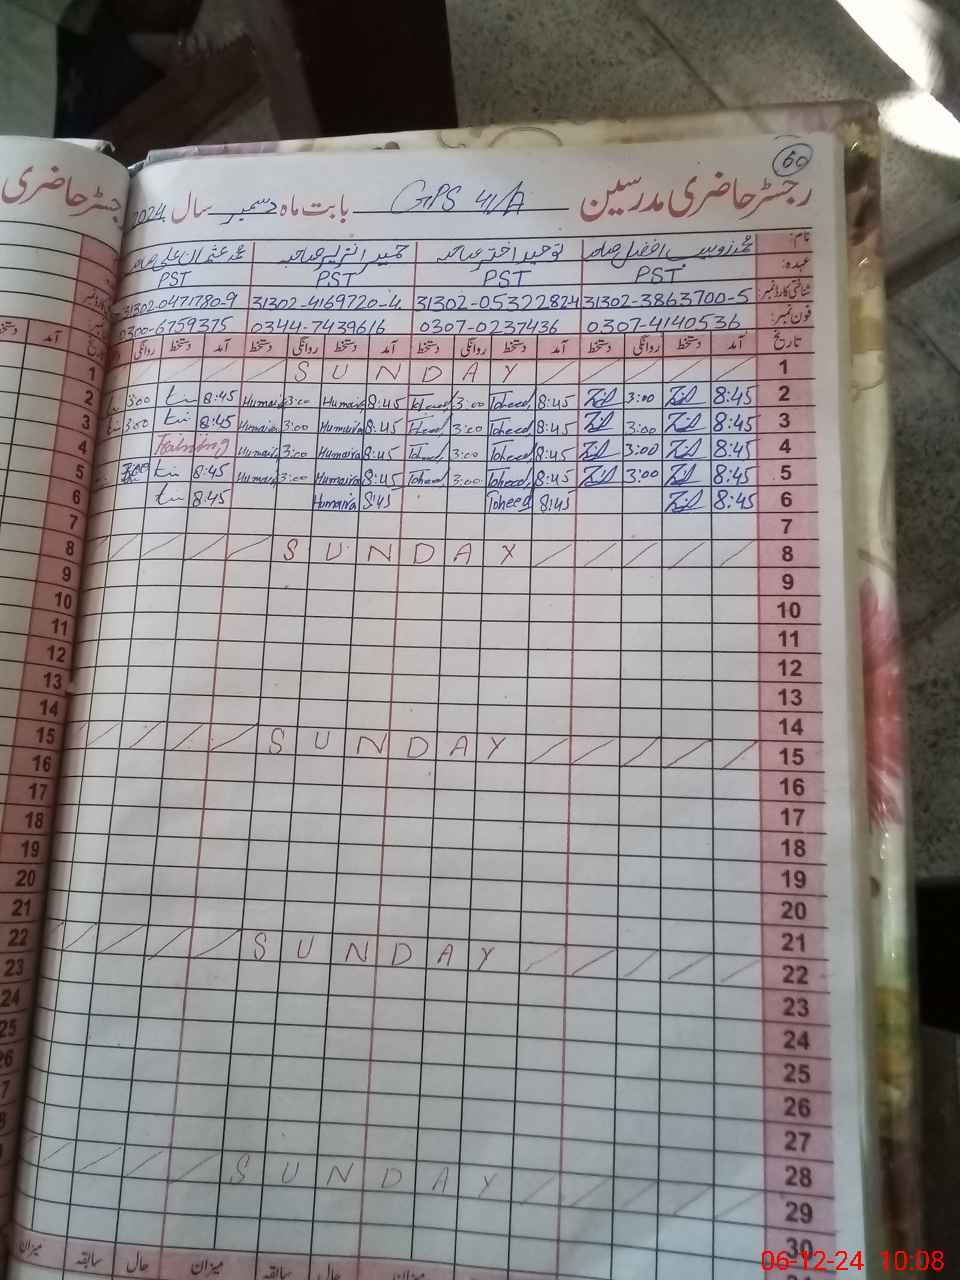 60
رجسٹر حاضری مدرسین GPS 41/A بابت ماہ دسمبر سال 2024
جسٹر حاضری
نام:
عہدہ: PST PST PST PST
شناختی کارڈ نمبر: 31302-3863700-5 31302-05322824 31302-4169720-4 31302-0471780-9
فون نمبر: 0307-4140536 0307-0237436 0344-7439616 0300-6759375
تاریخ آمد دستخط روانگی دستخط آمد دستخط روانگی دستخط آمد دستخط روانگی دستخط آمد دستخط روانگی
1 S U N D A Y
2 8:45 3:00 8:45 Toheed 3:00 8:45 Humaira 3:00 Humaira 8:45 3:00
3 8:45 3:00 8:45 Toheed 3:00 Toheed 8:45 Humaira 3:00 Humaira 8:45 3:00
4 8:45 3:00 8:45 Toheed 3:00 Toheed 8:45 Humaira 3:00 Humaira Training
5 8:45 3:00 8:45 Toheed 3:00 Toheed 8:45 Humaira 3:00 Humaira 8:45 3:00
6 8:45 8:45 Toheed 8:45 Humaira 8:45
7
8 S U N D A Y
9
10
11
12
13
14
15 S U N D A Y
16
17
18
19
20
21
22 S U N D A Y
23
24
25
26
27
28
29 S U N D A Y
30
میزان حال سابقہ میزان حال سابقہ میزان
آمد
1
2
3
4
5
6
7
8
9
10
11
12
13
14
15
16
17
18
19
20
21
22
23
24
25
26
06-12-24 10:08